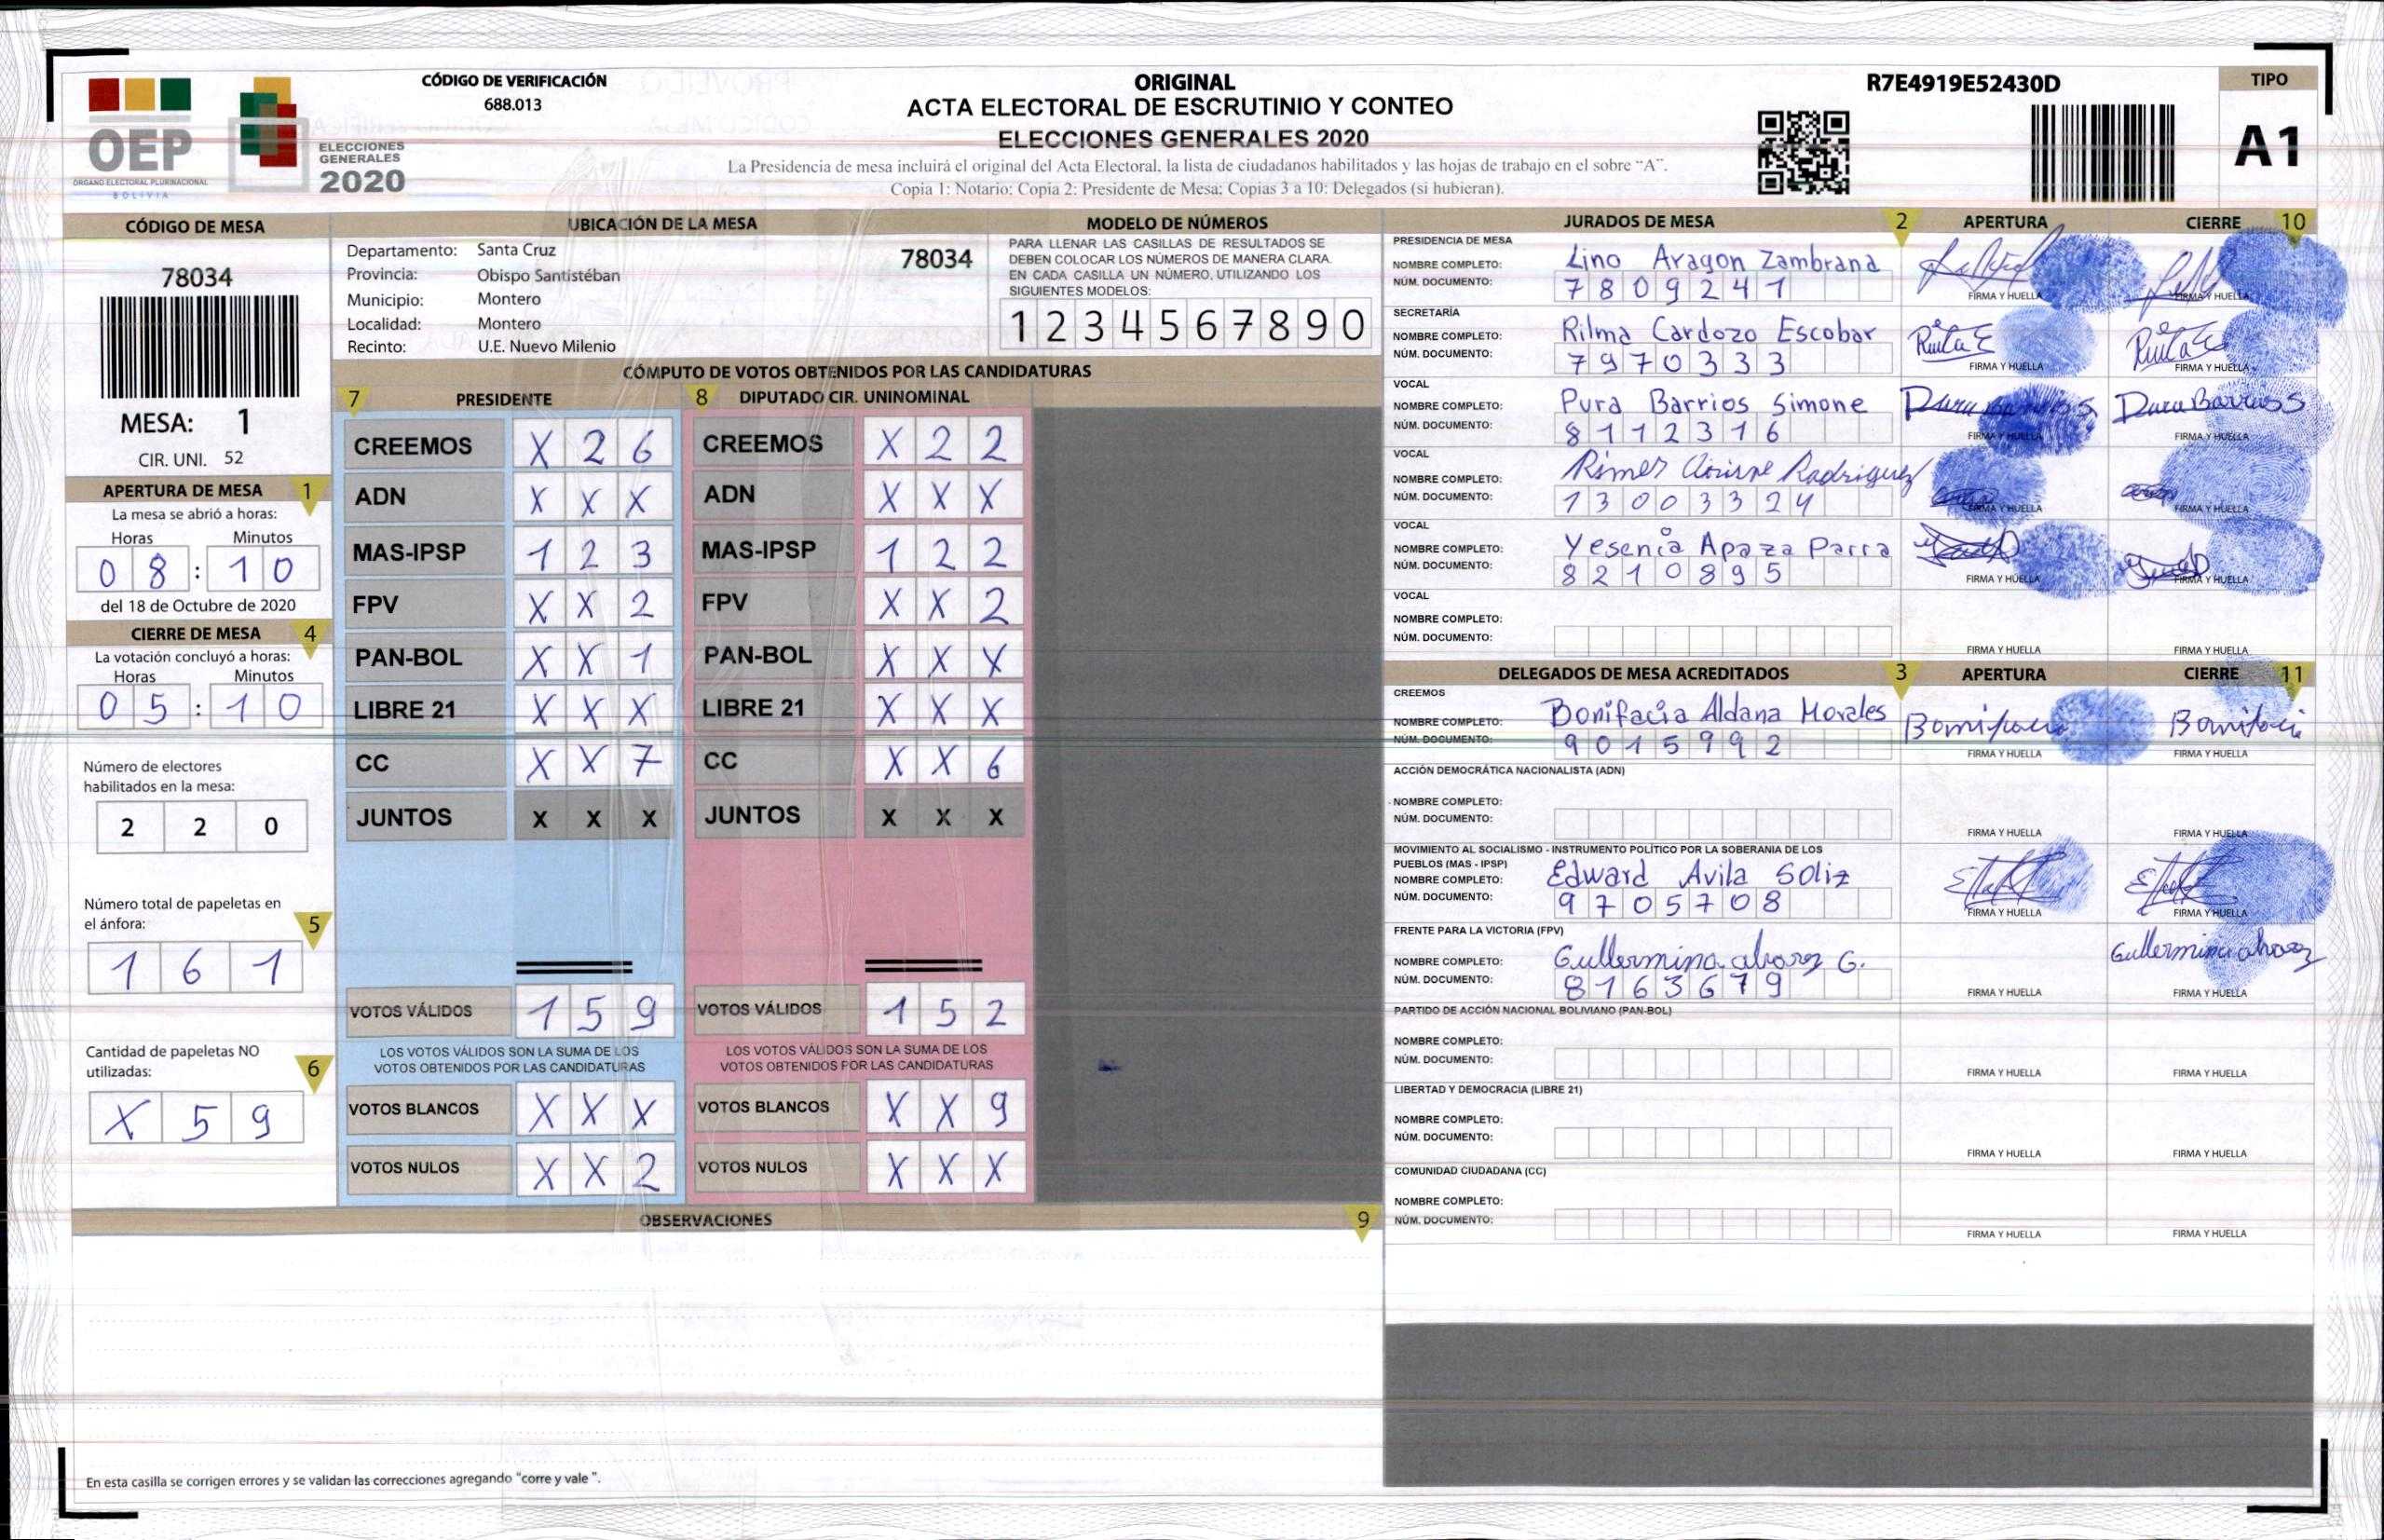 CÓDIGO DE VERIFICACIÓN
688.013
ORIGINAL
ACTA ELECTORAL DE ESCRUTINIO Y CONTEO
ELECCIONES GENERALES 2020
La Presidencia de mesa incluirá el original del Acta Electoral, la lista de ciudadanos habilitados y las hojas de trabajo en el sobre "A".
Copia 1: Notario; Copia 2: Presidente de Mesa; Copias 3 a 10: Delegados (si hubieran).
R7E4919E52430D
TIPO
A1
OEP
ÓRGANO ELECTORAL PLURINACIONAL
BOLIVIA
ELECCIONES
GENERALES
2020
CÓDIGO DE MESA
78034
MESA: 1
CIR. UNI. 52
APERTURA DE MESA 1
La mesa se abrió a horas:
Horas Minutos
0 8 : 1 0
del 18 de Octubre de 2020
CIERRE DE MESA 4
La votación concluyó a horas:
Horas Minutos
0 5 : 1 0
Número de electores
habilitados en la mesa:
2 2 0
Número total de papeletas en
el ánfora: 5
1 6 1
Cantidad de papeletas NO
utilizadas: 6
X 5 9
UBICACIÓN DE LA MESA
Departamento: Santa Cruz
Provincia: Obispo Santistéban
Municipio: Montero
Localidad: Montero
Recinto: U.E. Nuevo Milenio
78034
MODELO DE NÚMEROS
PARA LLENAR LAS CASILLAS DE RESULTADOS SE
DEBEN COLOCAR LOS NÚMEROS DE MANERA CLARA.
EN CADA CASILLA UN NÚMERO, UTILIZANDO LOS
SIGUIENTES MODELOS:
1 2 3 4 5 6 7 8 9 0
CÓMPUTO DE VOTOS OBTENIDOS POR LAS CANDIDATURAS
7 PRESIDENTE
CREEMOS X 2 6
ADN X X X
MAS-IPSP 1 2 3
FPV X X 2
PAN-BOL X X 1
LIBRE 21 X X X
CC X X 7
JUNTOS X X X
VOTOS VÁLIDOS 1 5 9
LOS VOTOS VÁLIDOS SON LA SUMA DE LOS
VOTOS OBTENIDOS POR LAS CANDIDATURAS
VOTOS BLANCOS X X X
VOTOS NULOS X X 2
8 DIPUTADO CIR. UNINOMINAL
CREEMOS X 2 2
ADN X X X
MAS-IPSP 1 2 2
FPV X X 2
PAN-BOL X X X
LIBRE 21 X X X
CC X X 6
JUNTOS X X X
VOTOS VÁLIDOS 1 5 2
LOS VOTOS VÁLIDOS SON LA SUMA DE LOS
VOTOS OBTENIDOS POR LAS CANDIDATURAS
VOTOS BLANCOS X X 9
VOTOS NULOS X X X
OBSERVACIONES 9
En esta casilla se corrigen errores y se validan las correcciones agregando "corre y vale ".
JURADOS DE MESA 2 APERTURA CIERRE 10
PRESIDENCIA DE MESA
NOMBRE COMPLETO: Lino Aragon Zambrana
NÚM. DOCUMENTO: 7 8 0 9 2 4 1
FIRMA Y HUELLA FIRMA Y HUELLA
SECRETARÍA
NOMBRE COMPLETO: Rilma Cardozo Escobar
NÚM. DOCUMENTO: 7 9 7 0 3 3 3
FIRMA Y HUELLA FIRMA Y HUELLA
VOCAL
NOMBRE COMPLETO: Pura Barrios Simone
NÚM. DOCUMENTO: 8 1 1 2 3 1 6
FIRMA Y HUELLA FIRMA Y HUELLA
VOCAL
NOMBRE COMPLETO: Rimer Rodriguez
NÚM. DOCUMENTO: 1 3 0 0 3 3 2 4
FIRMA Y HUELLA FIRMA Y HUELLA
VOCAL
NOMBRE COMPLETO: Yesenia Apaza Parra
NÚM. DOCUMENTO: 8 2 1 0 8 9 5
FIRMA Y HUELLA FIRMA Y HUELLA
VOCAL
NOMBRE COMPLETO:
NÚM. DOCUMENTO:
FIRMA Y HUELLA FIRMA Y HUELLA
DELEGADOS DE MESA ACREDITADOS 3 APERTURA CIERRE 11
CREEMOS
NOMBRE COMPLETO: Bonifacia Aldana Morales
NÚM. DOCUMENTO: 9 0 1 5 9 9 2
FIRMA Y HUELLA FIRMA Y HUELLA
ACCIÓN DEMOCRÁTICA NACIONALISTA (ADN)
NOMBRE COMPLETO:
NÚM. DOCUMENTO:
FIRMA Y HUELLA FIRMA Y HUELLA
MOVIMIENTO AL SOCIALISMO - INSTRUMENTO POLÍTICO POR LA SOBERANIA DE LOS
PUEBLOS (MAS - IPSP)
NOMBRE COMPLETO: Edward Avila Soliz
NÚM. DOCUMENTO: 9 7 0 5 7 0 8
FIRMA Y HUELLA FIRMA Y HUELLA
FRENTE PARA LA VICTORIA (FPV)
NOMBRE COMPLETO: Gullermina alvarez G.
NÚM. DOCUMENTO: 8 1 6 3 6 7 9
FIRMA Y HUELLA FIRMA Y HUELLA
PARTIDO DE ACCIÓN NACIONAL BOLIVIANO (PAN-BOL)
NOMBRE COMPLETO:
NÚM. DOCUMENTO:
FIRMA Y HUELLA FIRMA Y HUELLA
LIBERTAD Y DEMOCRACIA (LIBRE 21)
NOMBRE COMPLETO:
NÚM. DOCUMENTO:
FIRMA Y HUELLA FIRMA Y HUELLA
COMUNIDAD CIUDADANA (CC)
NOMBRE COMPLETO:
NÚM. DOCUMENTO:
FIRMA Y HUELLA FIRMA Y HUELLA